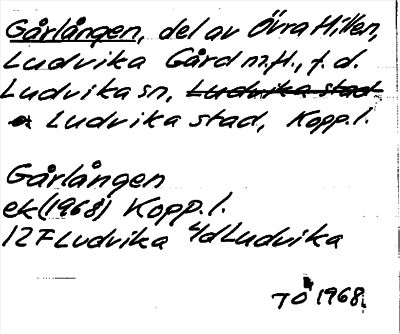 Gårlången, del av Övra Hillen,
Ludvika Gård m.fl., f.d.
Ludvika sn, Ludvika stad
Ludvika stad, Kopp.l.
Gårlången
ek (1968) Kopp.l.
12F Ludvika 4d Ludvika
TÖ 1968.